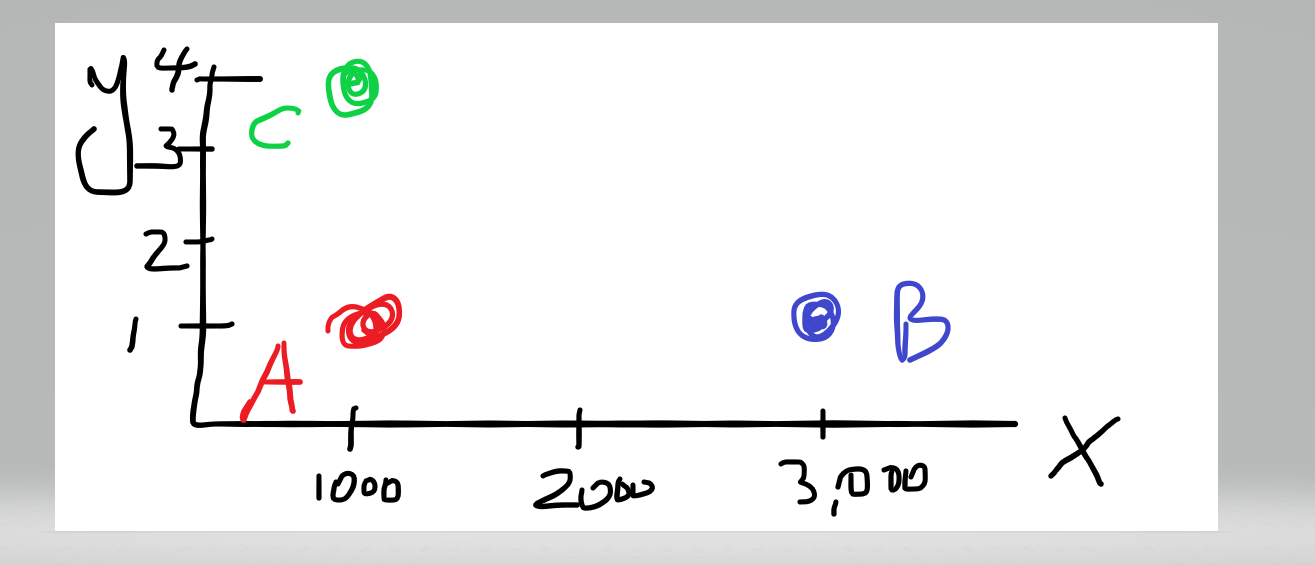 y
4
C
3
2
1
A
B
1000
2000
3,000
X